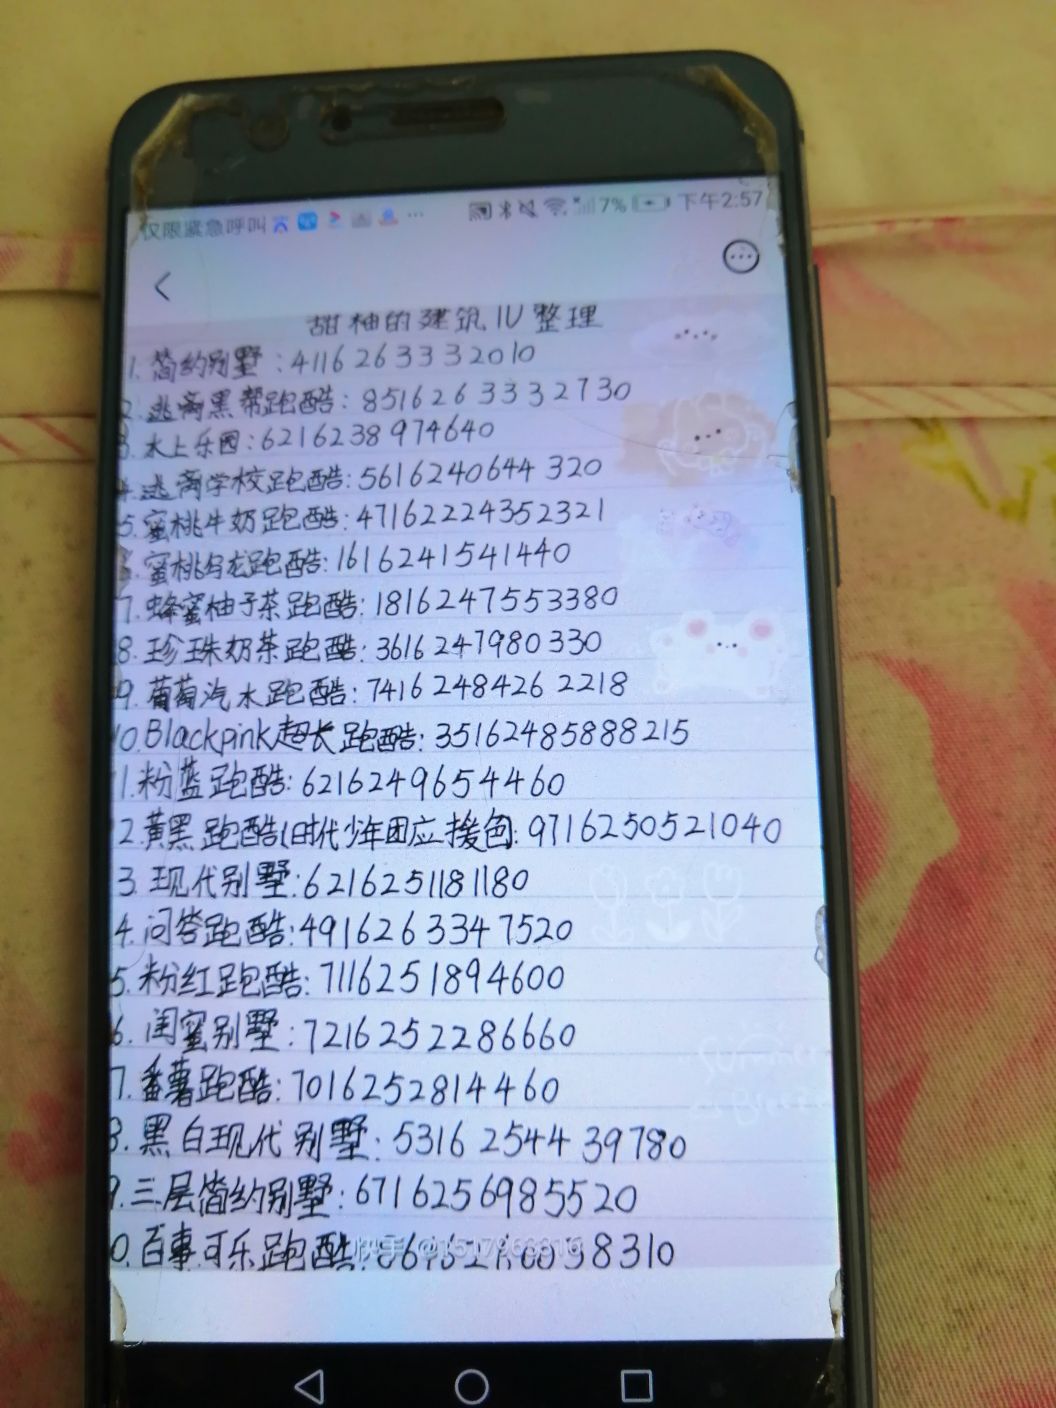 仅限紧急呼叫 ... 7% 下午2:57
甜柚的建筑IU整理
1.简约别墅:4116263332010
2.逃离黑帮跑酷:8516263332730
3.水上乐园:6216238974640
4.逃离学校跑酷:5616240644320
5.蜜桃牛奶跑酷:47162224352321
6.蜜桃乌龙跑酷:1616241541440
7.蜂蜜柚子茶跑酷:1816247553380
8.珍珠奶茶跑酷:3616247980330
9.葡萄汽水跑酷:74162484262218
10.Blackpink超长跑酷:35162485888215
1.粉蓝跑酷:6216249654460
2.黄黑跑酷(时代少年团应援色:9716250521040
3.现代别墅:6216251181180
4.问答跑酷:4916263347520
5.粉红跑酷:7116251894600
6.闺蜜别墅:7216252286660
7.番薯跑酷:7016252814460
8.黑白现代别墅:5316254439780
9.三层简约别墅:6716256985520
0.百事可乐跑酷: